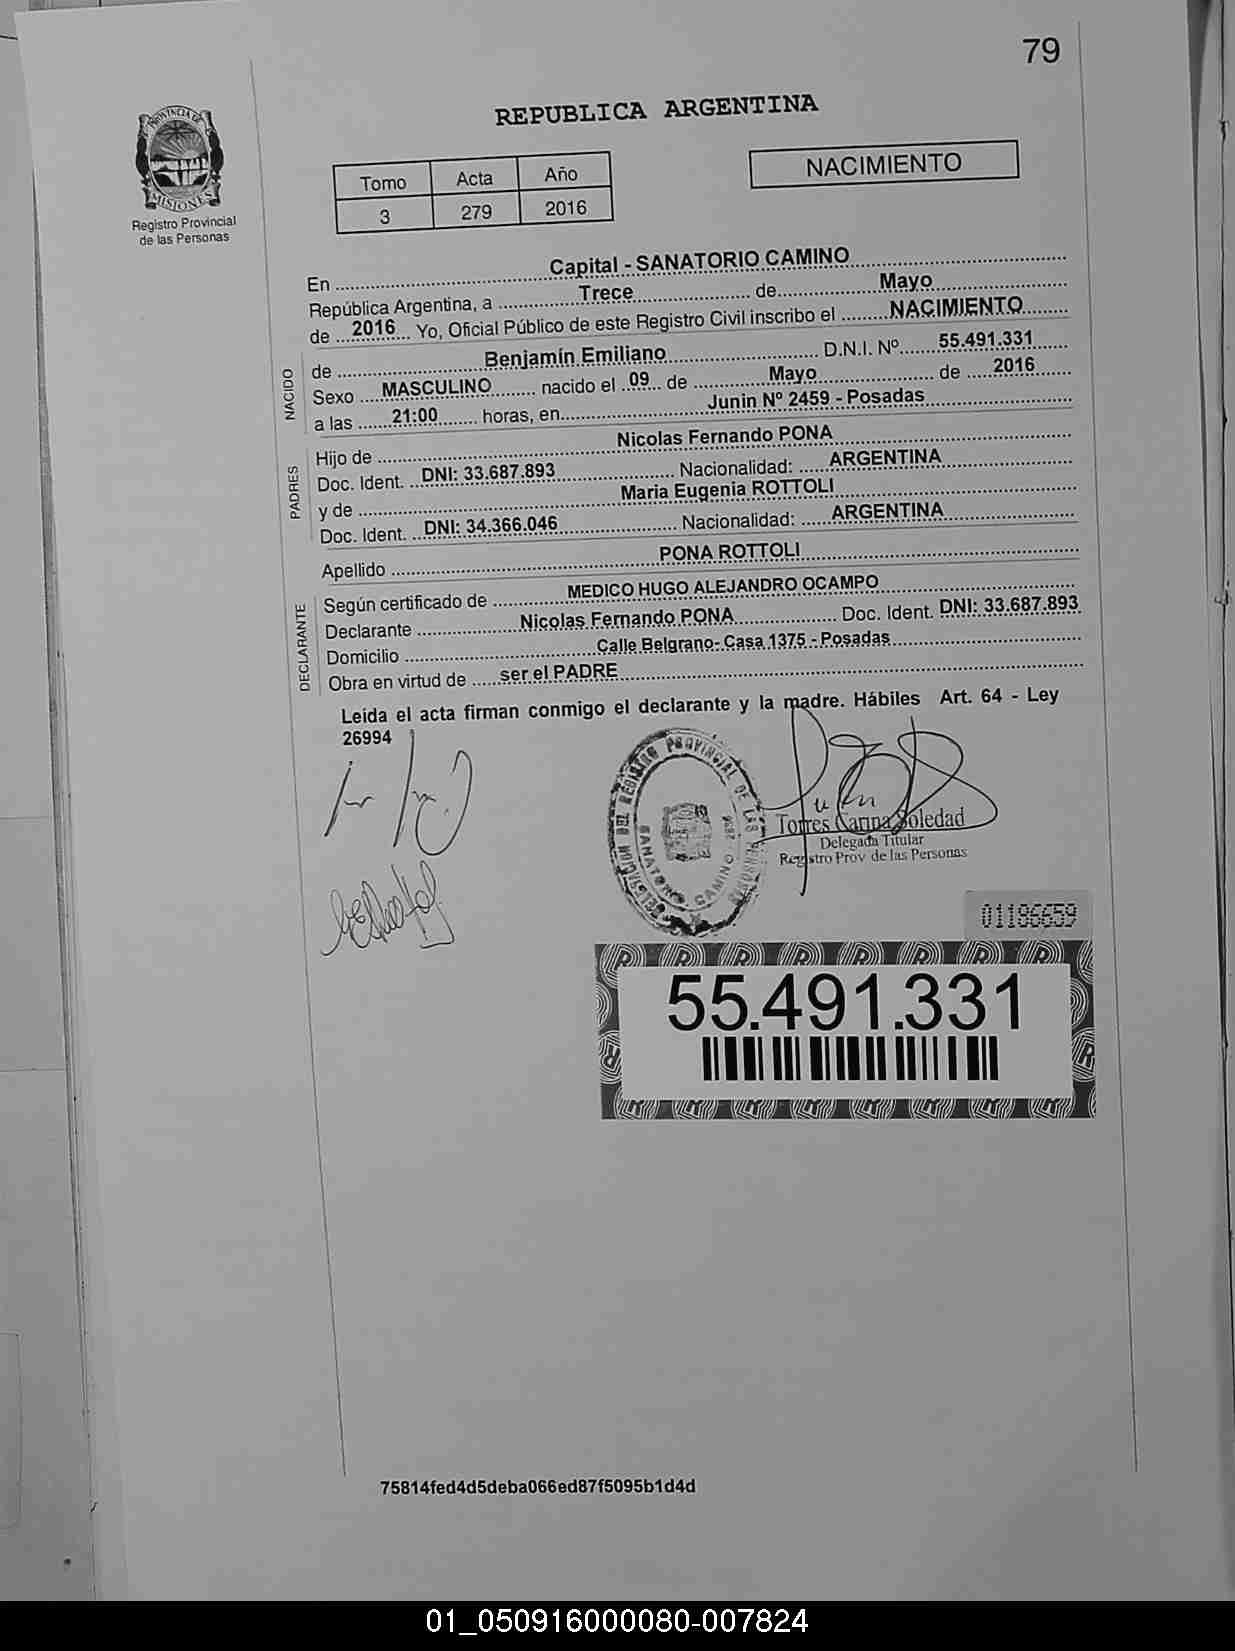 79
REPUBLICA ARGENTINA
PROVINCIA DE
MISIONES
Registro Provincial
de las Personas
Tomo Acta Año
3 279 2016
NACIMIENTO
En Capital - SANATORIO CAMINO
República Argentina, a Trece de Mayo
de 2016 Yo, Oficial Público de este Registro Civil inscribo el NACIMIENTO
NACIDO
de Benjamín Emiliano D.N.I. Nº 55.491.331
Sexo MASCULINO nacido el 09 de Mayo de 2016
a las 21:00 horas, en Junin Nº 2459 - Posadas
PADRES
Hijo de Nicolas Fernando PONA
Doc. Ident. DNI: 33.687.893 Nacionalidad: ARGENTINA
y de Maria Eugenia ROTTOLI
Doc. Ident. DNI: 34.366.046 Nacionalidad: ARGENTINA
Apellido PONA ROTTOLI
DECLARANTE
Según certificado de MEDICO HUGO ALEJANDRO OCAMPO
Declarante Nicolas Fernando PONA Doc. Ident. DNI: 33.687.893
Domicilio Calle Belgrano- Casa 1375 - Posadas
Obra en virtud de ser el PADRE
Leida el acta firman conmigo el declarante y la madre. Hábiles Art. 64 - Ley
26994
DELEGACION DEL REGISTRO PROVINCIAL DE LAS PERSONAS
SANATORIO CAMINO
Torres Carina Soledad
Delegada Titular
Registro Prov de las Personas
01186659
55.491.331
75814fed4d5deba066ed87f5095b1d4d
01_050916000080-007824